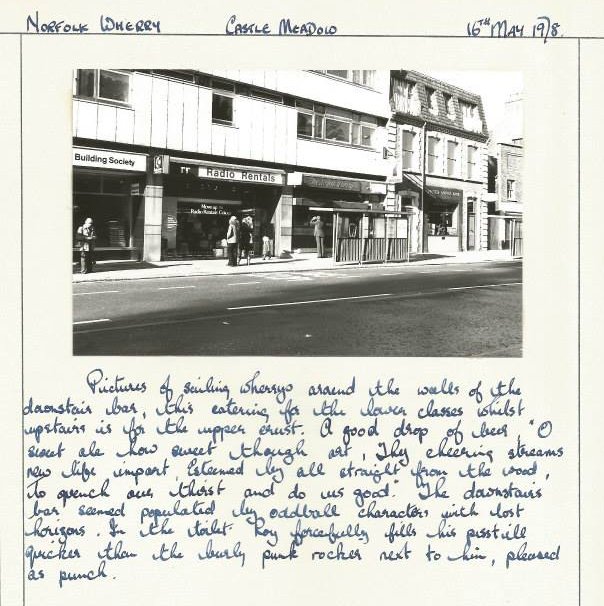 NORFOLK WHERRY CASTLE MEADOW 16TH MAY 1978.
Building Society
Radio Rentals
Move up to
Radio Rentals Colour
Pictures of sailing wherrys around the walls of the
downstair bar, this catering for the lower classes whilst
upstairs is for the upper crust. A good drop of beer, "O
sweet ale how sweet though art, Thy cheering streams
new life impart, Esteemed by all straight from the wood,
to quench our thirst and do us good." The downstairs
bar seemed populated by oddball characters with lost
horizons. In the toilet Roy forcefully fills his pisstill
quicker than the burly punk rocker next to him, pleased
as punch.